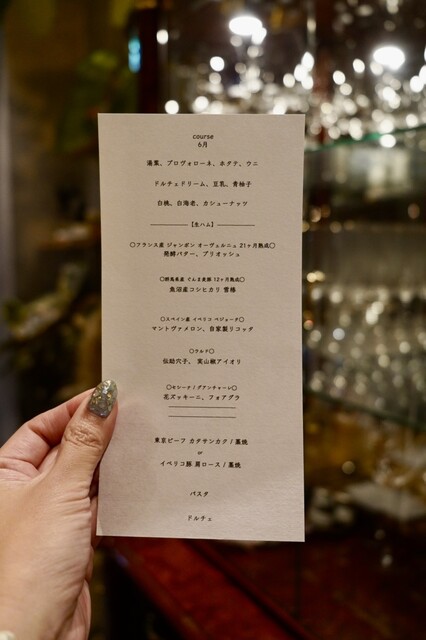 course
6月
湯葉、プロヴォローネ、ホタテ、ウニ
ドルチェドリーム、豆乳、青柚子
白桃、白海老、カシューナッツ
【生ハム】
〇フランス産 ジャンボン オーヴェルニュ 21ヶ月熟成〇
発酵バター、ブリオッシュ
〇群馬県産 ぐんま麦豚 12ヶ月熟成〇
魚沼産コシヒカリ 雪椿
〇スペイン産 イベリコ ベジョータ〇
マントヴァメロン、自家製リコッタ
〇ラルド〇
伝助穴子、実山椒アイオリ
〇セシーナ/グアンチャーレ〇
花ズッキーニ、フォアグラ
東京ビーフ カタサンカク / 藁焼
or
イベリコ豚 肩ロース / 藁焼
パスタ
ドルチェ